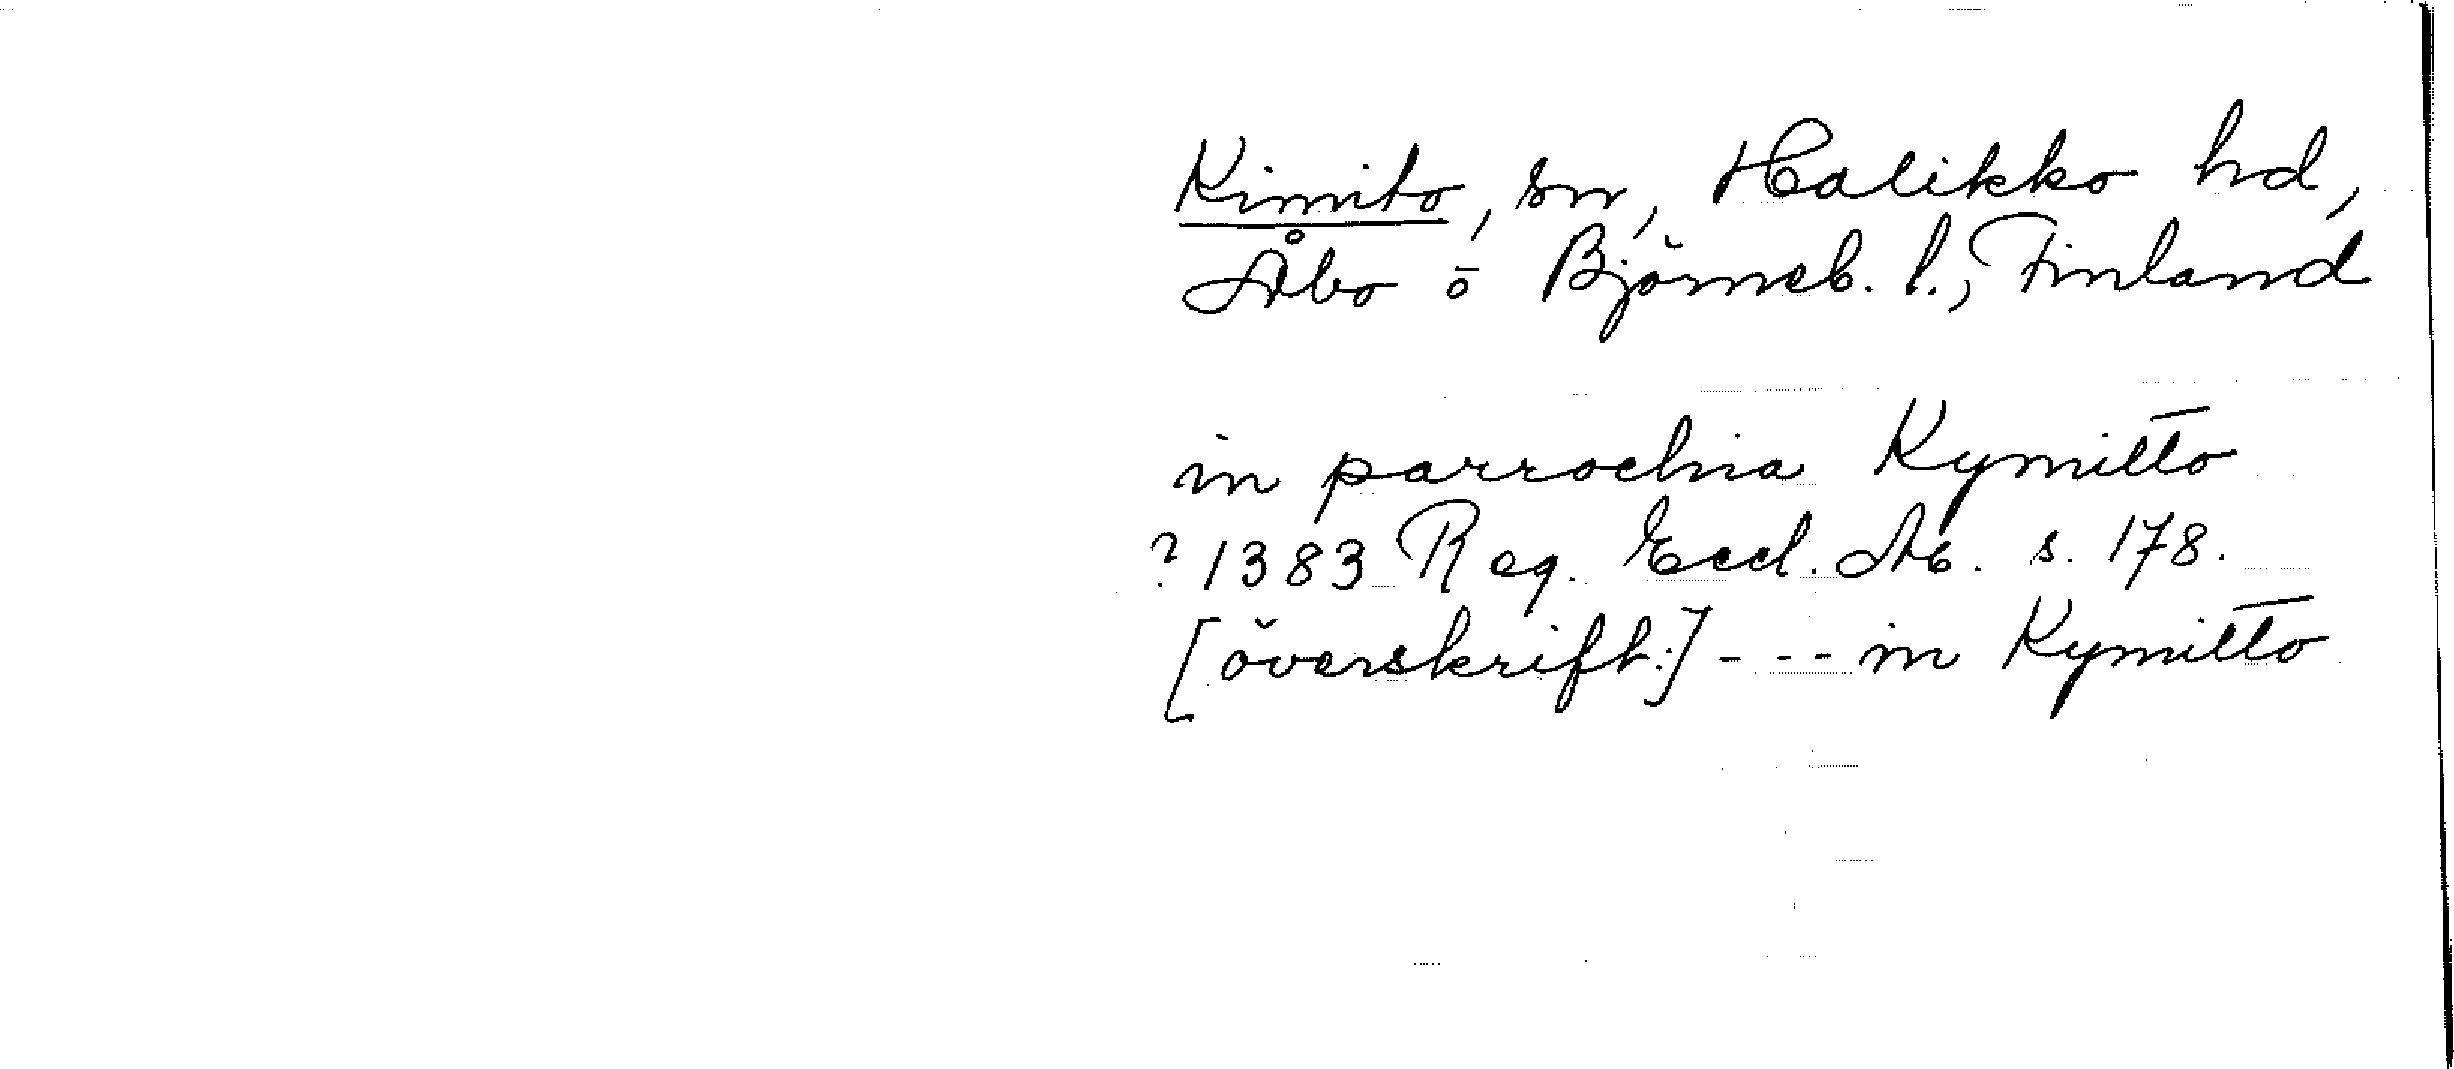 Kimito, sn, Halikko hd,
Åbo o Björneb. l., Finland
in parrochia Kymitto
? 1383 Reg. Eccl. Ab. s. 178.
[överskrift:] - - - in Kymitto